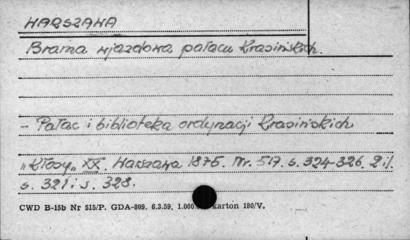 WARSZAWA
Brama wjazdowa pałacu Krasińskich.
- Pałac i biblioteka ordynacji Krasińskich
"Kłosy" XX. Warszawa 1875. Nr. 517. s. 324-326. 2 il.
s. 321 i s. 328.
CWD B-15b Nr 515/P. GDA-809. 6.3.59. 1.000. karton 180/V.